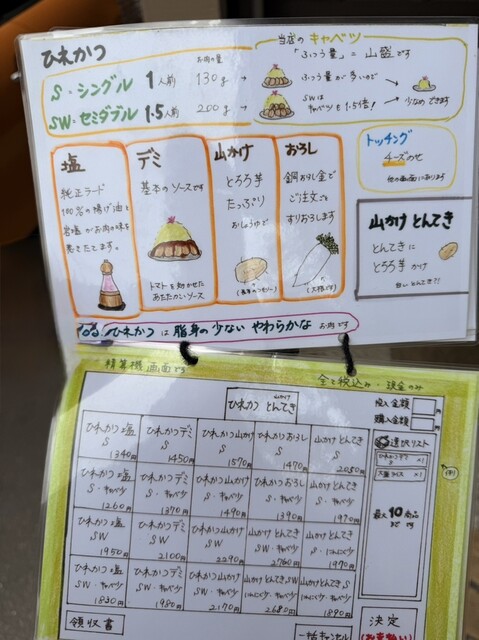 ひれかつ
お肉の量
S・シングル 1人前 130g
SW・セミダブル 1.5人前 200g
当店のキャベツ
「ふつう量」=山盛です
ふつう量が多いので
少なめできます
SWは
キャベツも1.5倍!
塩
純正ラード
100%の揚げ油と
岩塩がお肉の味を
デミ
基本のソースです
トマトを効かせた
あたたかいソース
山かけ
とろろ芋
たっぷり
おしょうゆで
おろし
鋼おろし金で
ご注文ごと
すりおろします
(大根です)
トッチング
チーズのせ
他の画面にあります
山かけ とんてき
とんてきに
とろろ芋かけ
ひれかつは脂身の少ない やわらかな お肉です
精算機画面です
全て税込み・現金のみ
ひれかつ 山かけ とんてき
投入金額
購入金額
選択リスト
ひれかつデミ S ×1
大盛ライス ×1
(例)
最大10商品まで
ひれかつ 塩 S 1340円
ひれかつ デミ S 1450円
ひれかつ 山かけ S 1570円
ひれかつ おろし S 1470円
山かけ とんてき S 2050円
ひれかつ 塩 S・キャベツ 1260円
ひれかつ デミ S・キャベツ 1370円
ひれかつ 山かけ S・キャベツ 1490円
ひれかつ おろし S・キャベツ 1390円
山かけ とんてき S・キャベツ 1970円
ひれかつ 塩 SW 1950円
ひれかつ デミ SW 2100円
ひれかつ 山かけ SW 2290円
山かけ とんてき SW・キャベツ 2760円
山かけ とんてき S・にんにく 1970円
ひれかつ 塩 SW・キャベツ 1830円
ひれかつ デミ SW・キャベツ 1980円
ひれかつ 山かけ SW・キャベツ 2170円
山かけ とんてき SW にんにく・キャベツ 2680円
山かけ とんてき S にんにく・キャベツ 1890円
領収書
一括キャンセル
決定
(お支払い)